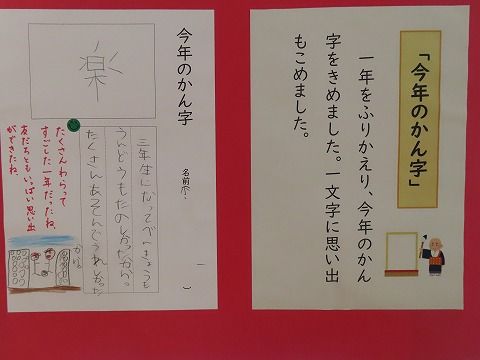 「今年のかん字」
一年をふりかえり、今年のかん
字をきめました。一文字に思い出
もこめました。
今年のかん字
楽
名前
三年生になってべんきょうも
うんどうもたのしかったから。
たくさんあそんでうれしかった
から。
たくさんわらって
すごした一年だったね。
友だちともいっぱい思い出
ができたね。